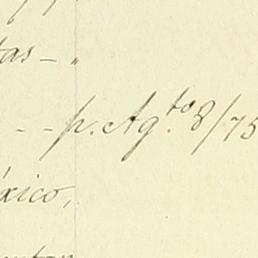 tas – "
- - p. Agto. 8/75
éxico,